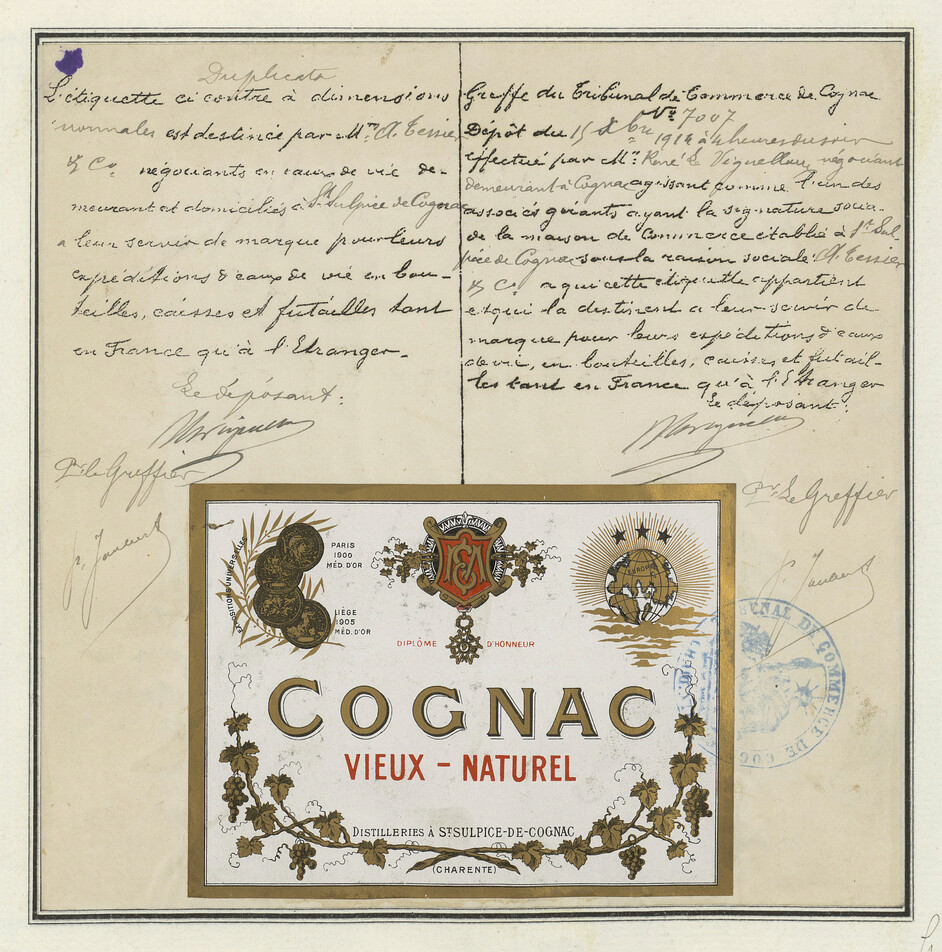 Duplicata
L'étiquette ci contre à dimensions
normales est destinée par Mrs A. Tessier
& Co négociants en eaux de vie de-
meurant et domiciliés à St Sulpice de Cognac
a leur servir de marque pour leurs
expéditions d'eaux de vie en bou-
teilles, caisses et futailles tant
en France qu'à l'Etranger.
Le déposant:
Pr le Greffier
Greffe du Tribunal de Commerce de Cognac
No 7007
Dépôt du 15 Xbre 1914 à 4 heures du soir
effectué par Mr René Le Vignellour, négociant
demeurant à Cognac agissant comme l'un des
associés gerants ayant la signature socia-
le de la maison de Commerce établie à St Sul-
pice de Cognac sous la raison sociale: A. Tessier
& Co a qui cette étiquette appartient
et qui la destinent a leur servir de
marque pour leurs expéditions d'eaux
de vie, en bouteilles, caisses et futail-
les tant en France qu'à l'Etranger
Le déposant:
Pr Le Greffier
EXPOSITIONS UNIVERSELLES
PARIS
1900
MÉD. D'OR
LIÈGE
1905
MÉD. D'OR
DIPLÔME D'HONNEUR
EUROPE
COGNAC
VIEUX - NATUREL
DISTILLERIES À ST SULPICE-DE-COGNAC
(CHARENTE)
TRIBUNAL DE COMMERCE DE COG